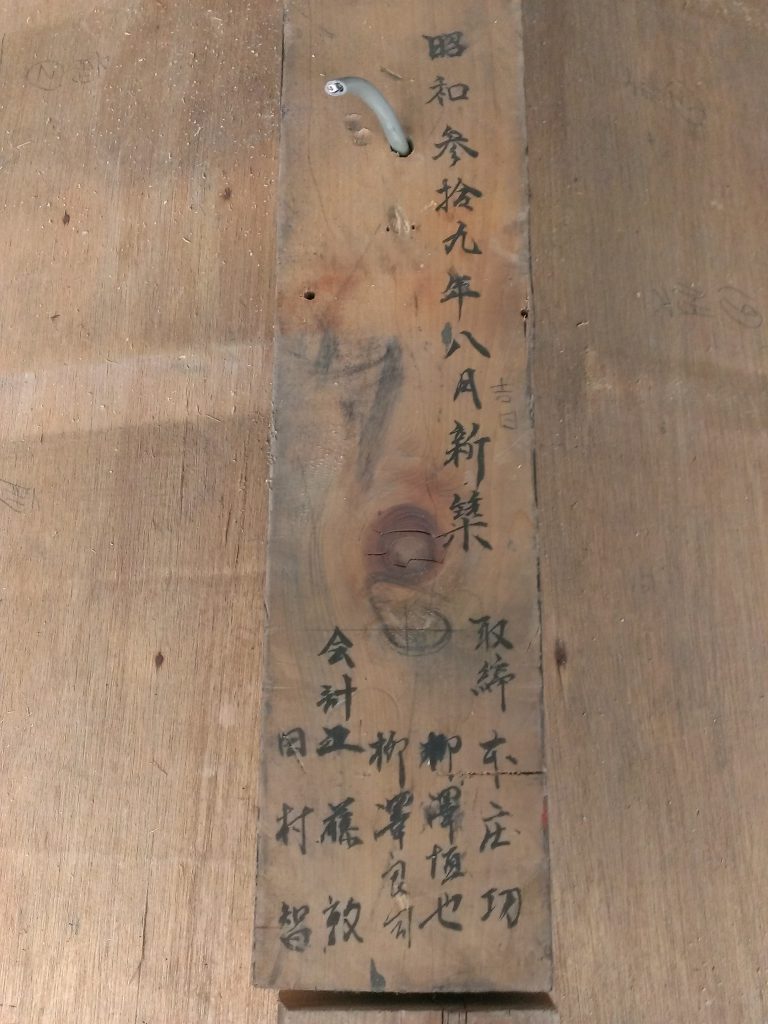 昭和参拾九年八月新築
吉日
取締 本庄功
柳澤恒也
柳澤良司
会計 工藤敦
田村智